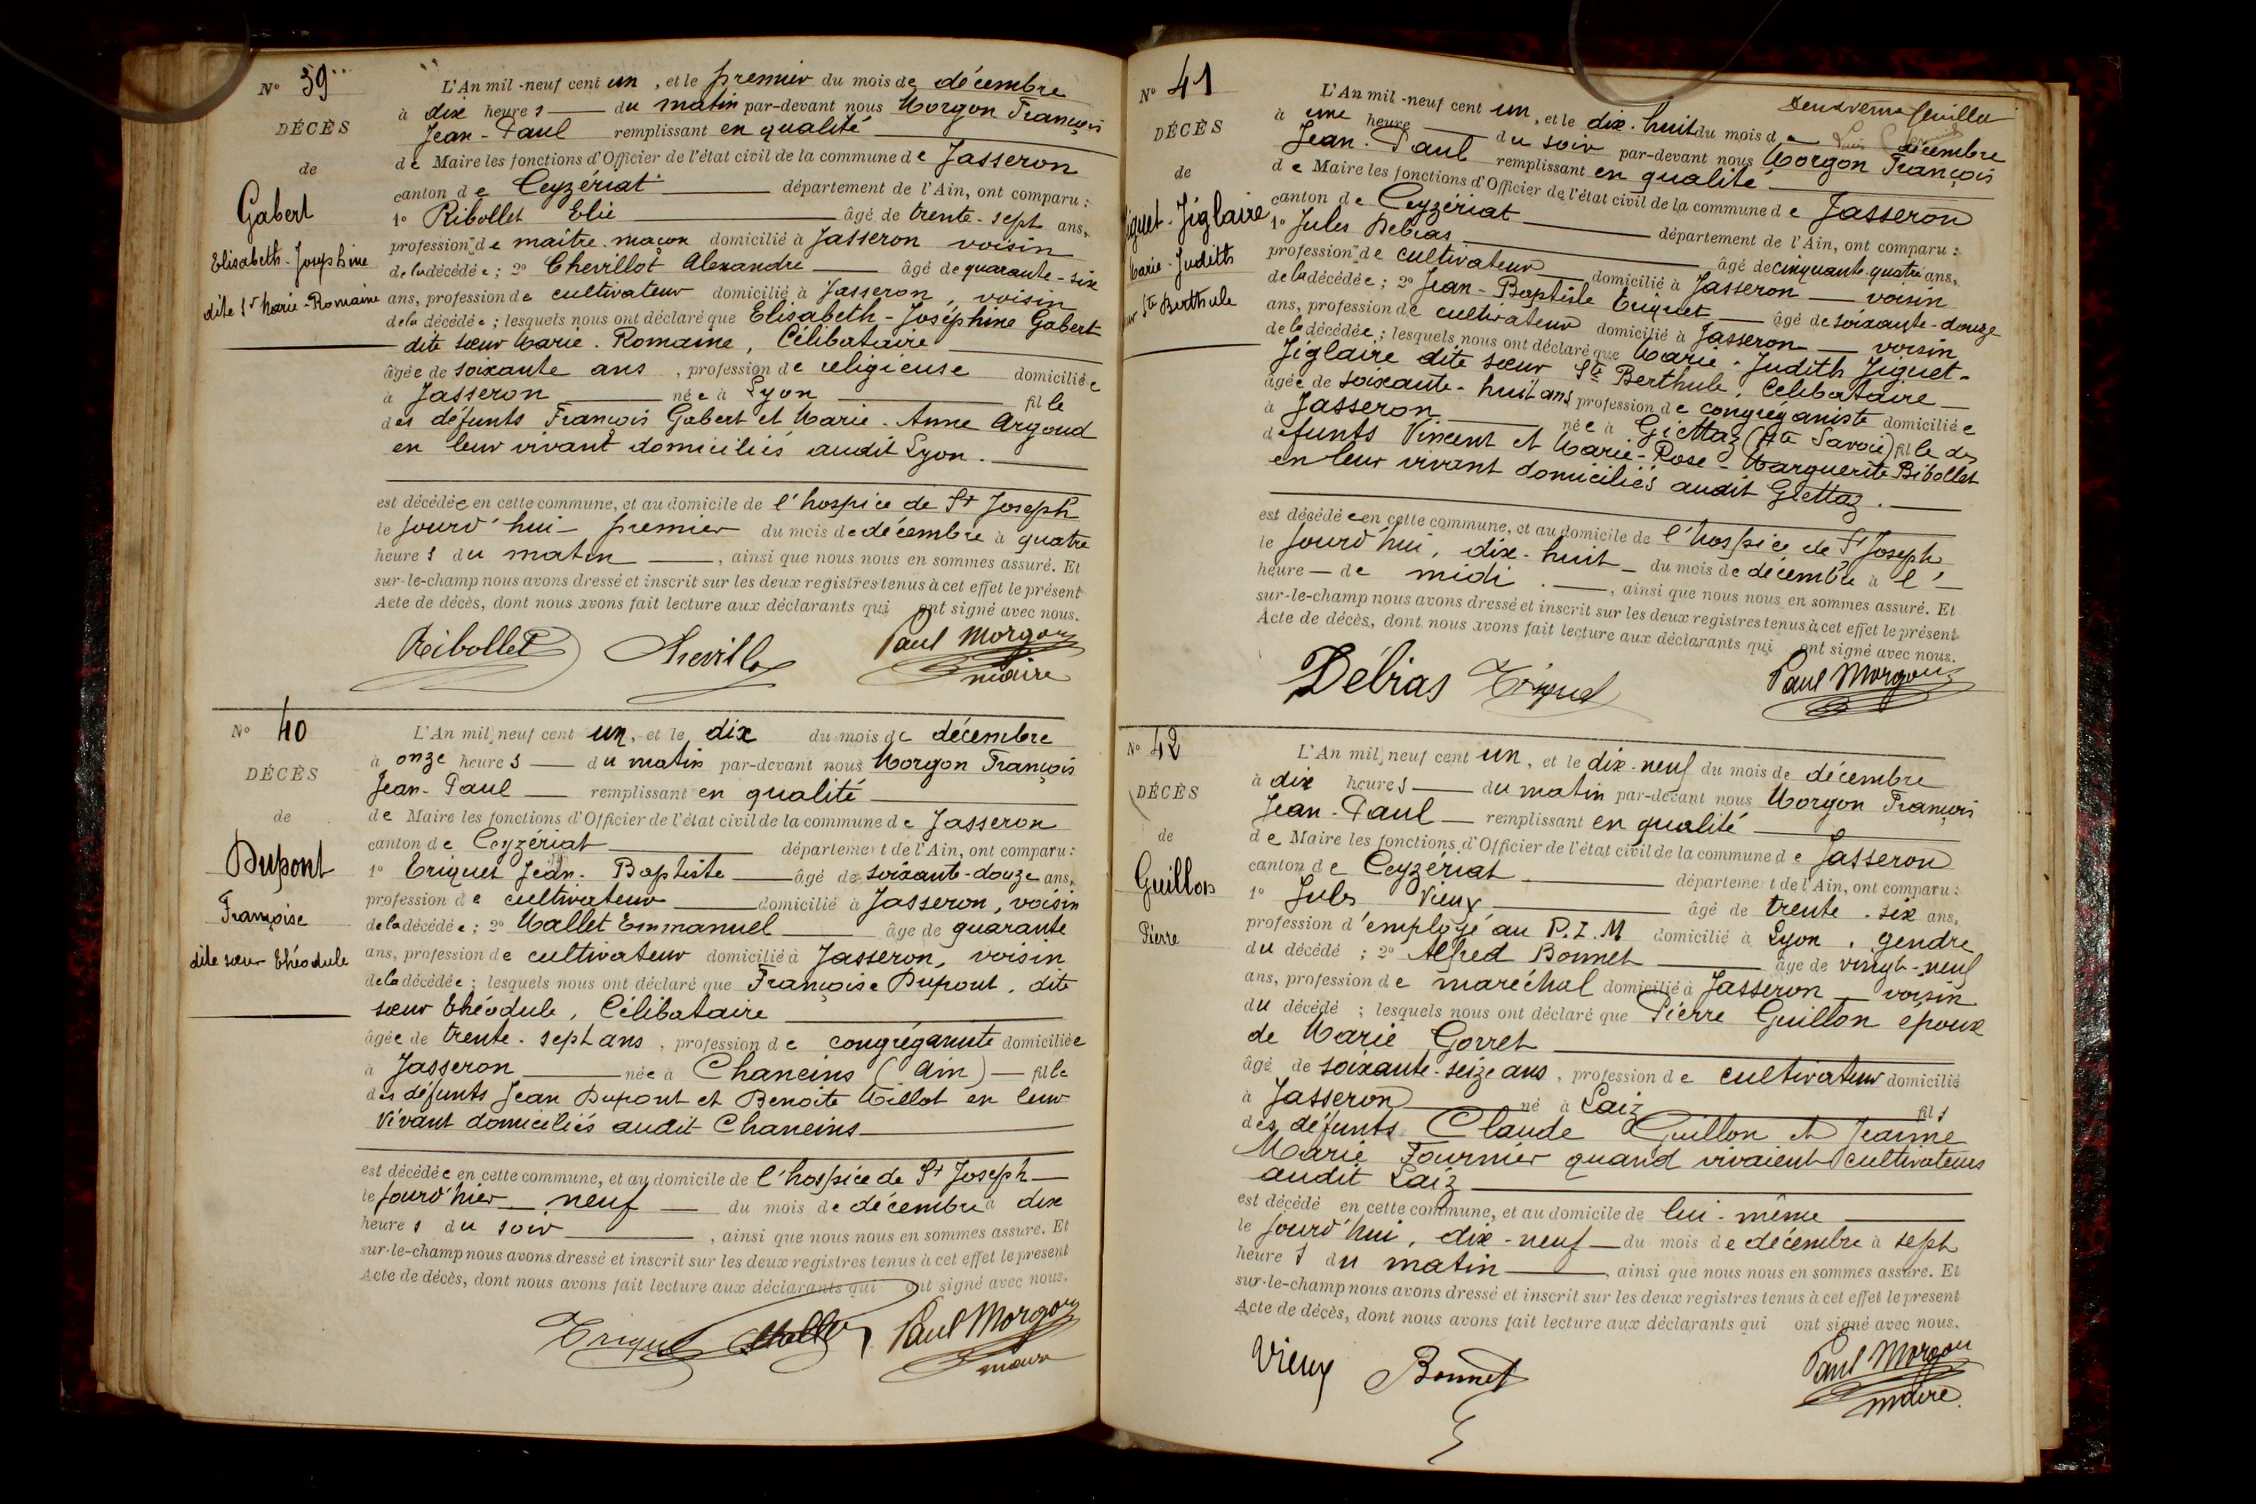 N° 39
DÉCÈS
de
Gabert
Elisabeth-Josephine
dite Sr Marie-Romaine
L'An mil-neuf cent un, et le premier du mois de décembre
à dix heures du matin par-devant nous Morgon François
Jean-Paul remplissant en qualité
de Maire les fonctions d'Officier de l'état civil de la commune de Jasseron
canton de Ceyzériat département de l'Ain, ont comparu :
1° Ribollet Elie âgé de trente-sept ans,
profession de maître-maçon domicilié à Jasseron voisin
de la décédée ; 2° Chevillot Alexandre âgé de quarante-six
ans, profession de cultivateur domicilié à Jasseron, voisin
de la décédée ; lesquels nous ont déclaré que Elisabeth-Joséphine Gabert
dite sœur Marie-Romaine, Célibataire
âgée de soixante ans, profession de religieuse domiciliée
à Jasseron née à Lyon fille
des défunts François Gabert et Marie-Anne Argoud
en leur vivant domiciliés audit Lyon.
est décédée en cette commune, et au domicile de l'hospice de St Joseph
le jourd'hui premier du mois de décembre à quatre
heures du matin, ainsi que nous nous en sommes assuré. Et
sur-le-champ nous avons dressé et inscrit sur les deux registres tenus à cet effet le présent
Acte de décès, dont nous avons fait lecture aux déclarants qui ont signé avec nous.
Ribollet Chevillot Paul Morgon
maire
N° 40
DÉCÈS
de
Dupont
Françoise
dite sœur Théodule
L'An mil neuf cent un, et le dix du mois de décembre
à onze heures du matin par-devant nous Morgon François
Jean-Paul remplissant en qualité
de Maire les fonctions d'Officier de l'état civil de la commune de Jasseron
canton de Ceyzériat département de l'Ain, ont comparu :
1° Triquet Jean-Baptiste âgé de soixante-douze ans,
profession de cultivateur domicilié à Jasseron, voisin
de la décédée ; 2° Mallet Emmanuel âgé de quarante
ans, profession de cultivateur domicilié à Jasseron, voisin
de la décédée ; lesquels nous ont déclaré que Françoise Dupont, dite
sœur Théodule, Célibataire
âgée de trente-sept ans, profession de congréganiste domiciliée
à Jasseron née à Chaneins (Ain) fille
des défunts Jean Dupont et Benoite Millot en leur
vivant domiciliés audit Chaneins
est décédée en cette commune, et au domicile de l'hospice de St Joseph
le jourd'hier neuf du mois de décembre à dix
heures du soir, ainsi que nous nous en sommes assuré. Et
sur-le-champ nous avons dressé et inscrit sur les deux registres tenus à cet effet le présent
Acte de décès, dont nous avons fait lecture aux déclarants qui ont signé avec nous.
Triquet Mallet Paul Morgon
maire
N° 41
DÉCÈS
de
Jiguet-Jiglaire
Marie-Judith
Ste Berthule
feuillet
L'An mil-neuf cent un, et le dix-huit du mois de décembre
à une heure du soir par-devant nous Morgon François
Jean-Paul remplissant en qualité
de Maire les fonctions d'Officier de l'état civil de la commune de Jasseron
canton de Ceyzériat département de l'Ain, ont comparu :
1° Jules Debias âgé de cinquante-quatre ans,
profession de cultivateur domicilié à Jasseron voisin
de la décédée ; 2° Jean-Baptiste Triquet âgé de soixante-douze
ans, profession de cultivateur domicilié à Jasseron voisin
de la décédée ; lesquels nous ont déclaré que Marie-Judith Jiguet-
Jiglaire dite sœur Ste Berthule, Célibataire
âgée de soixante-huit ans profession de congréganiste domiciliée
à Jasseron née à Giettaz (Hte Savoie) fille des
défunts Vincent et Marie-Rose-Marguerite Bibollet
en leur vivant domiciliés audit Giettaz.
est décédée en cette commune, et au domicile de l'hospice de St Joseph
le jourd'hui, dix-huit du mois de décembre à l'
heure de midi, ainsi que nous nous en sommes assuré. Et
sur-le-champ nous avons dressé et inscrit sur les deux registres tenus à cet effet le présent
Acte de décès, dont nous avons fait lecture aux déclarants qui ont signé avec nous.
Débias Triquet Paul Morgon
N° 42
DÉCÈS
de
Guillon
Pierre
L'An mil neuf cent un, et le dix-neuf du mois de décembre
à dix heures du matin par-devant nous Morgon François
Jean-Paul remplissant en qualité
de Maire les fonctions d'Officier de l'état civil de la commune de Jasseron
canton de Ceyzériat département de l'Ain, ont comparu :
1° Jules Vieux âgé de trente-six ans,
profession d'employé au P.L.M domicilié à Lyon, gendre
du décédé ; 2° Alfred Bonnet âgé de vingt-neuf
ans, profession de maréchal domicilié à Jasseron voisin
du décédé ; lesquels nous ont déclaré que Pierre Guillon époux
de Marie Gorret
âgé de soixante-seize ans, profession de cultivateur domicilié
à Jasseron né à Laiz fils
des défunts Claude Guillon et Jeanne
Marie Fournier quand vivaient cultivateurs
audit Laiz
est décédé en cette commune, et au domicile de lui-même
le jourd'hui, dix-neuf du mois de décembre à sept
heures du matin, ainsi que nous nous en sommes assuré. Et
sur-le-champ nous avons dressé et inscrit sur les deux registres tenus à cet effet le présent
Acte de décès, dont nous avons fait lecture aux déclarants qui ont signé avec nous.
Vieux Bonnet Paul Morgon
maire